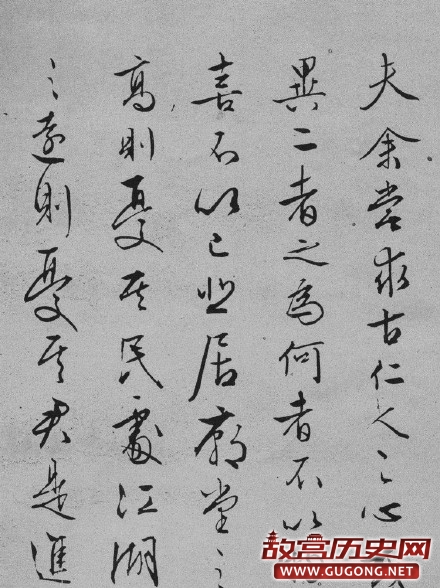 夫余嘗求古仁人之心
異二者之為何者不以
喜不以己悲居廟堂之
高則憂其民處江湖
之遠則憂其君是進
故宫历史网
WWW.GUGONG.NET